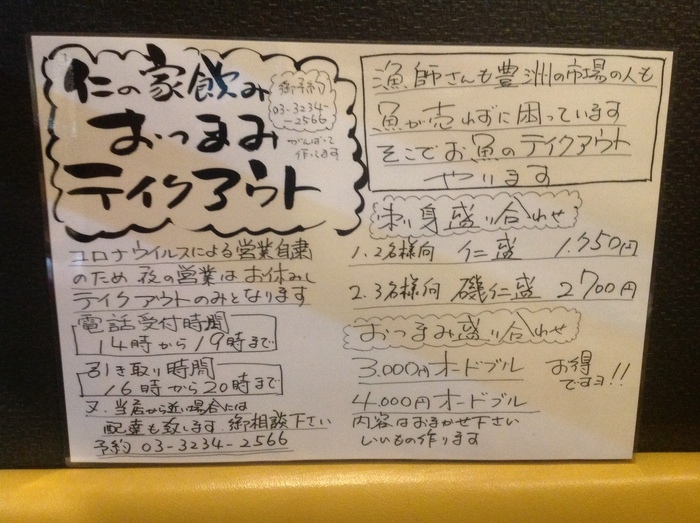 仁の家飲み
おつまみ
テイクアウト
御予約
03-3234-
-2566
がんばって
作ってます
コロナウイルスによる営業自粛
のため 夜の営業は お休みし
テイクアウトのみとなります
電話受付時間
14時から19時まで
引き取り時間
16時から20時まで
又、当店から近い場合には
配達も致します 御相談下さい
予約 03-3234-2566
漁師さんも豊洲の市場の人も
魚が売れずに困っています
そこでお魚のテイクアウト
やります
刺し身盛り合わせ
1.2名様向 仁盛 1.750円
2.3名様向 磯仁盛 2700円
おつまみ盛り合わせ
3.000円オードブル
お得
ですヨ!!
4.000円オードブル
内容はおまかせ下さい
いいもの作ります